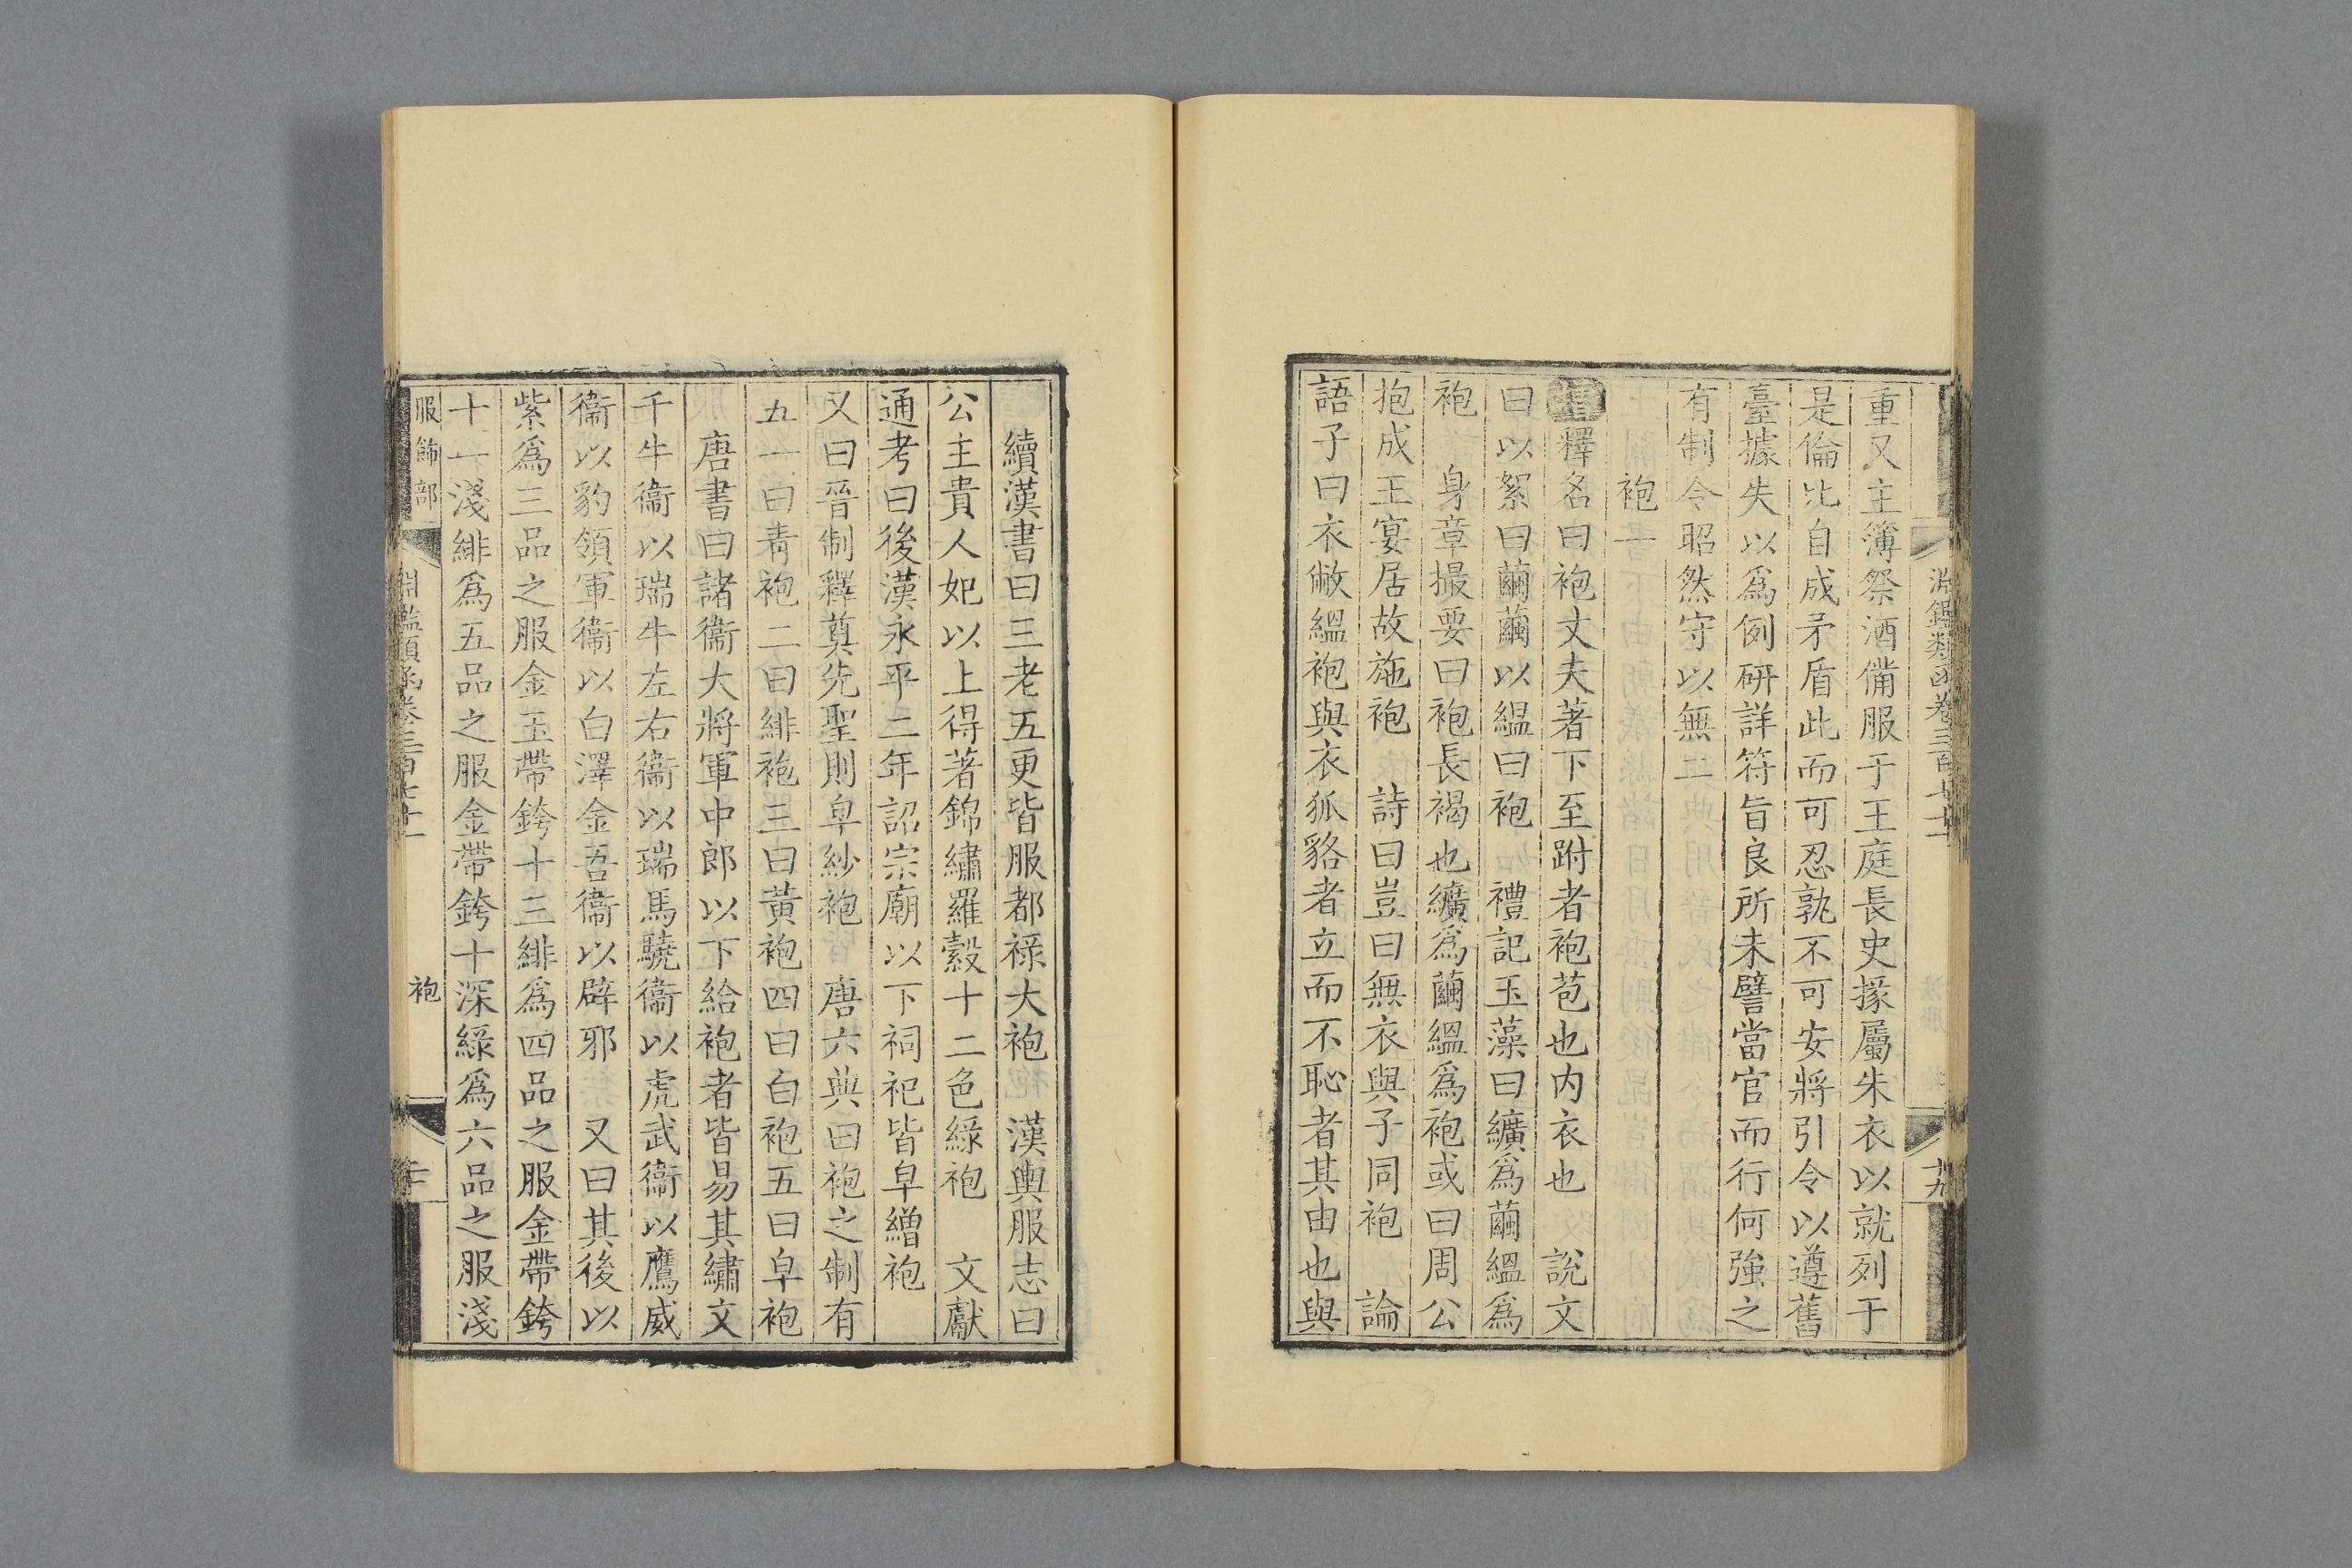 淵鑑類函卷三百七十一
十九
重又主簿祭酒備服于王庭長史掾屬朱衣以就列于
是倫比自成矛盾此而可忍孰不可安將引令以遵舊
臺據失以爲例研詳符旨良所未譬當官而行何強之
有制令昭然守以無二
袍一
釋名曰袍丈夫著下至跗者袍苞也内衣也 說文
曰以絮曰繭繭以緼曰袍 禮記玉藻曰纊爲繭緼爲
袍 身章撮要曰袍長褐也纊爲繭緼爲袍或曰周公
抱成王宴居故施袍 詩曰豈曰無衣與子同袍 論
語子曰衣敝緼袍與衣狐貉者立而不恥者其由也與
續漢書曰三老五更皆服都禄大袍 漢輿服志曰
公主貴人妃以上得著錦繡羅縠十二色綠袍 文獻
通考曰後漢永平二年詔宗廟以下祠祀皆皁繒袍
又曰晉制釋奠先聖則皁紗袍 唐六典曰袍之制有
五一曰青袍二曰緋袍三曰黃袍四曰白袍五曰皁袍
唐書曰諸衞大將軍中郎以下給袍者皆易其繡文
千牛衞以瑞牛左右衞以瑞馬驍衞以虎武衞以鷹威
衞以豹領軍衞以白澤金吾衞以辟邪 又曰其後以
紫爲三品之服金玉帶銙十三緋爲四品之服金帶銙
十一淺緋爲五品之服金帶銙十深綠爲六品之服淺
服飾部 淵鑑類函卷三百七十一 袍 二十